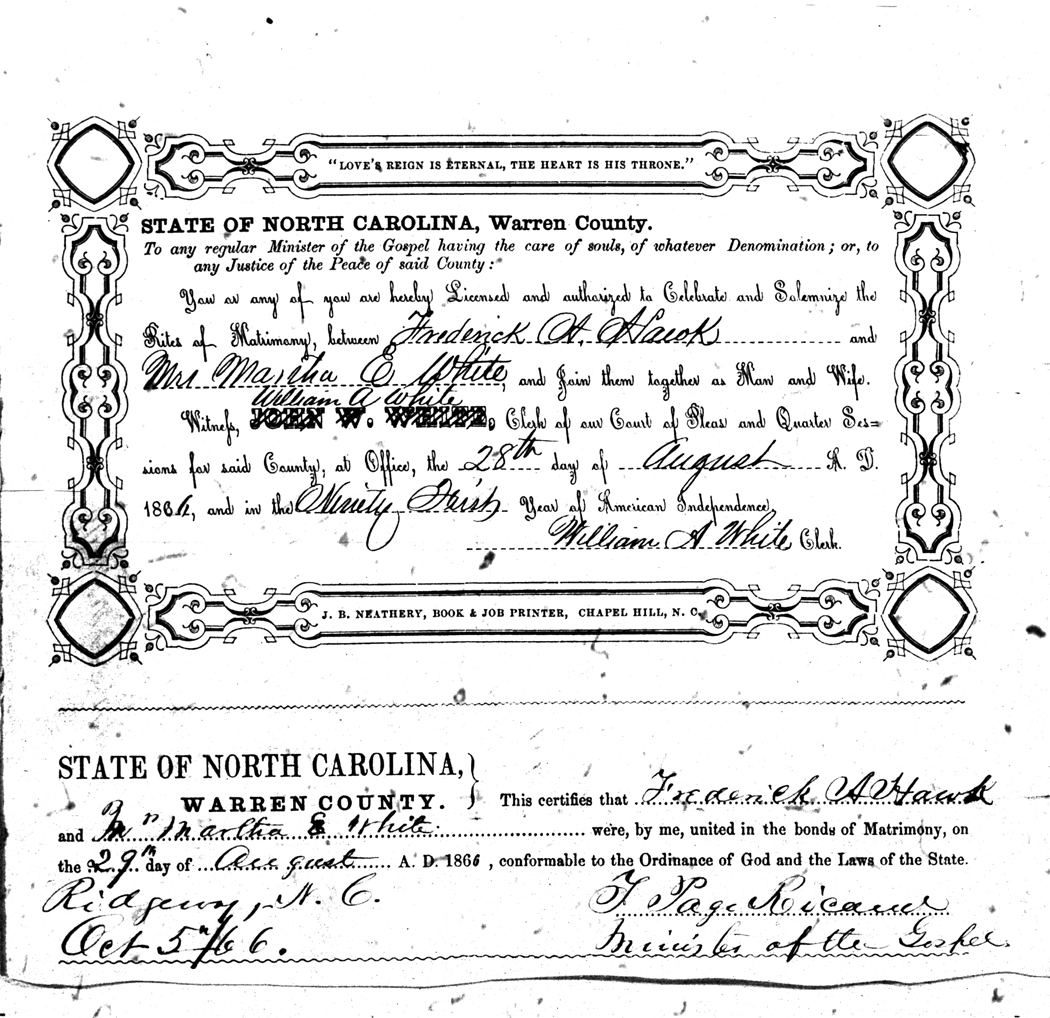 "LOVE'S REIGN IS ETERNAL, THE HEART IS HIS THRONE."
STATE OF NORTH CAROLINA, Warren County.
To any regular Minister of the Gospel having the care of souls, of whatever Denomination; or, to
any Justice of the Peace of said County:
You or any of you are hereby Licensed and authorized to Celebrate and Solemnize the
Rites of Matrimony, between Frederick A. Hawk and
Mrs Martha E White, and Join them together as Man and Wife.
William A White
Witness, JOHN W. WHITE, Clerk of our Court of Pleas and Quarter Ses=
sions for said County, at Office, the 28th day of August A. D.
1866, and in the Ninety First Year of American Independence
William A White Clerk.
J. B. NEATHERY, BOOK & JOB PRINTER, CHAPEL HILL, N. C.
STATE OF NORTH CAROLINA,
WARREN COUNTY. } This certifies that Frederick A Hawk
and Mrs Martha E White were, by me, united in the bonds of Matrimony, on
the 29th day of August A. D. 1866, conformable to the Ordinance of God and the Laws of the State.
Ridgeway, N. C. T Page Ricaud
Oct 5th/66. Minister of the Gospel